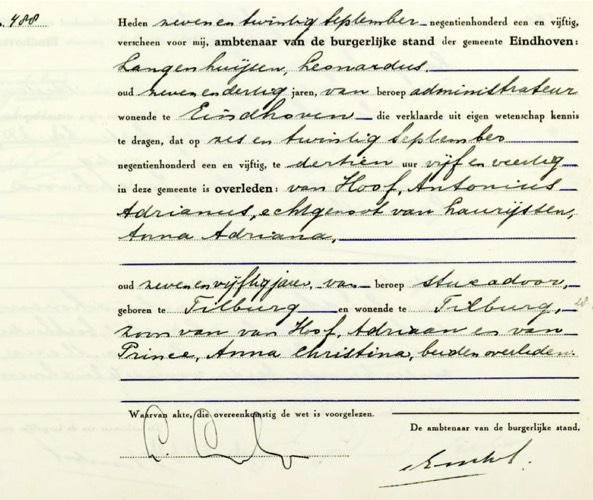 488
Heden zeven en twintig September negentienhonderd een en vijftig,
verscheen voor mij, ambtenaar van de burgerlijke stand der gemeente Eindhoven:
Langenhuijsen, Leonardus
oud zevenendertig jaren, van beroep administrateur
wonende te Eindhoven die verklaarde uit eigen wetenschap kennis
te dragen, dat op zes en twintig September
negentienhonderd een en vijftig, te dertien uur vijf en veertig
in deze gemeente is overleden: van Hoof, Antonius
Adrianus, echtgenoot van Laurijssen,
Anna Adriana,
oud zevenenvijftig jaren, van beroep stucadoor,
geboren te Tilburg en wonende te Tilburg,
zoon van van Hoof, Adriaan en van
Prince, Anna Christina, beiden overleden.
Waarvan akte, die overeenkomstig de wet is voorgelezen.
De ambtenaar van de burgerlijke stand,